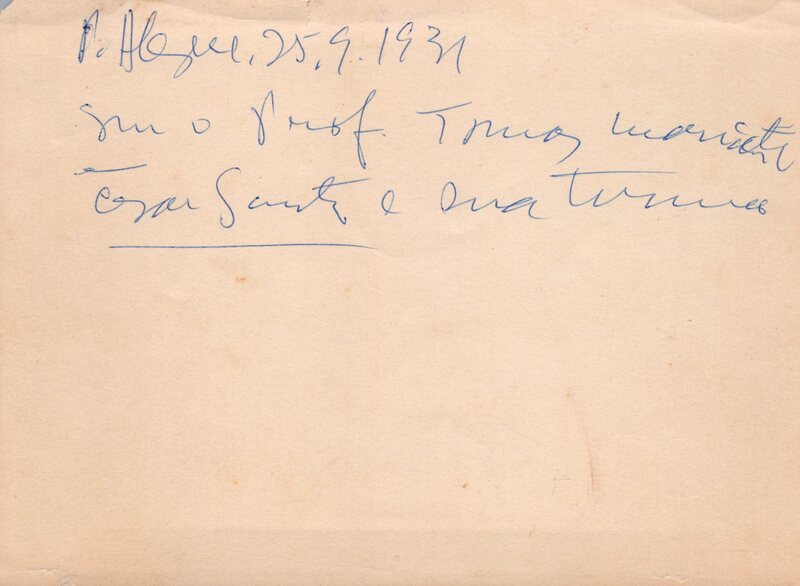 P. Alegre, 25.9.1931
Com o Prof. Tomaz Mariante
Cesar Santos e sua turma